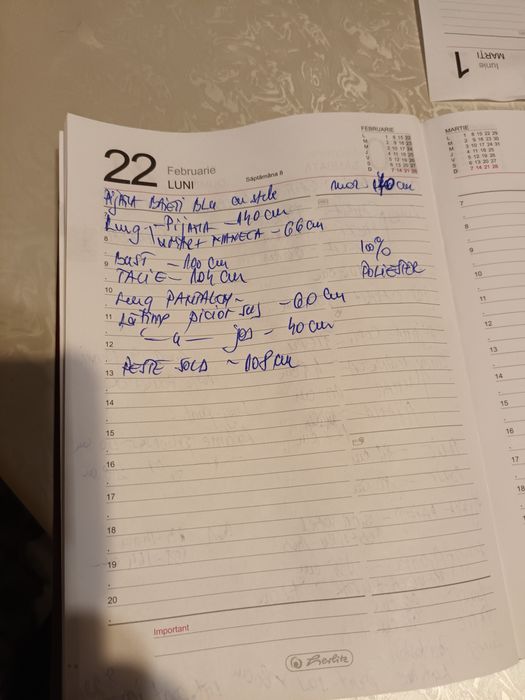 1
MARȚI
Iunie
22
Februarie
LUNI
Săptămâna 8
FEBRUARIE
L 1 8 15 22
M 2 9 16 23
M 3 10 17 24
J 4 11 18 25
V 5 12 19 26
S 6 13 20 27
D 7 14 21 28
MARTIE
L 1 8 15 22 29
M 2 9 16 23 30
M 3 10 17 24 31
J 4 11 18 25
V 5 12 19 26
S 6 13 20 27
D 7 14 21 28
PIJAMA BAIETI BLU cu stele
mar 140 cm
Lung - PIJAMA - 140 cm
MANECA - 66 cm
100%
POLIESTER
BUST - 100 cm
TALIE - 104 cm
Lung PANTALON -
Lățime picior sus - 60 cm
—"— jos - 40 cm
PESTE SOLD - 108 cm
8
9
10
11
12
13
14
15
16
17
18
19
20
Important
herlitz
7
8
9
10
11
12
13
14
15
16
17
18